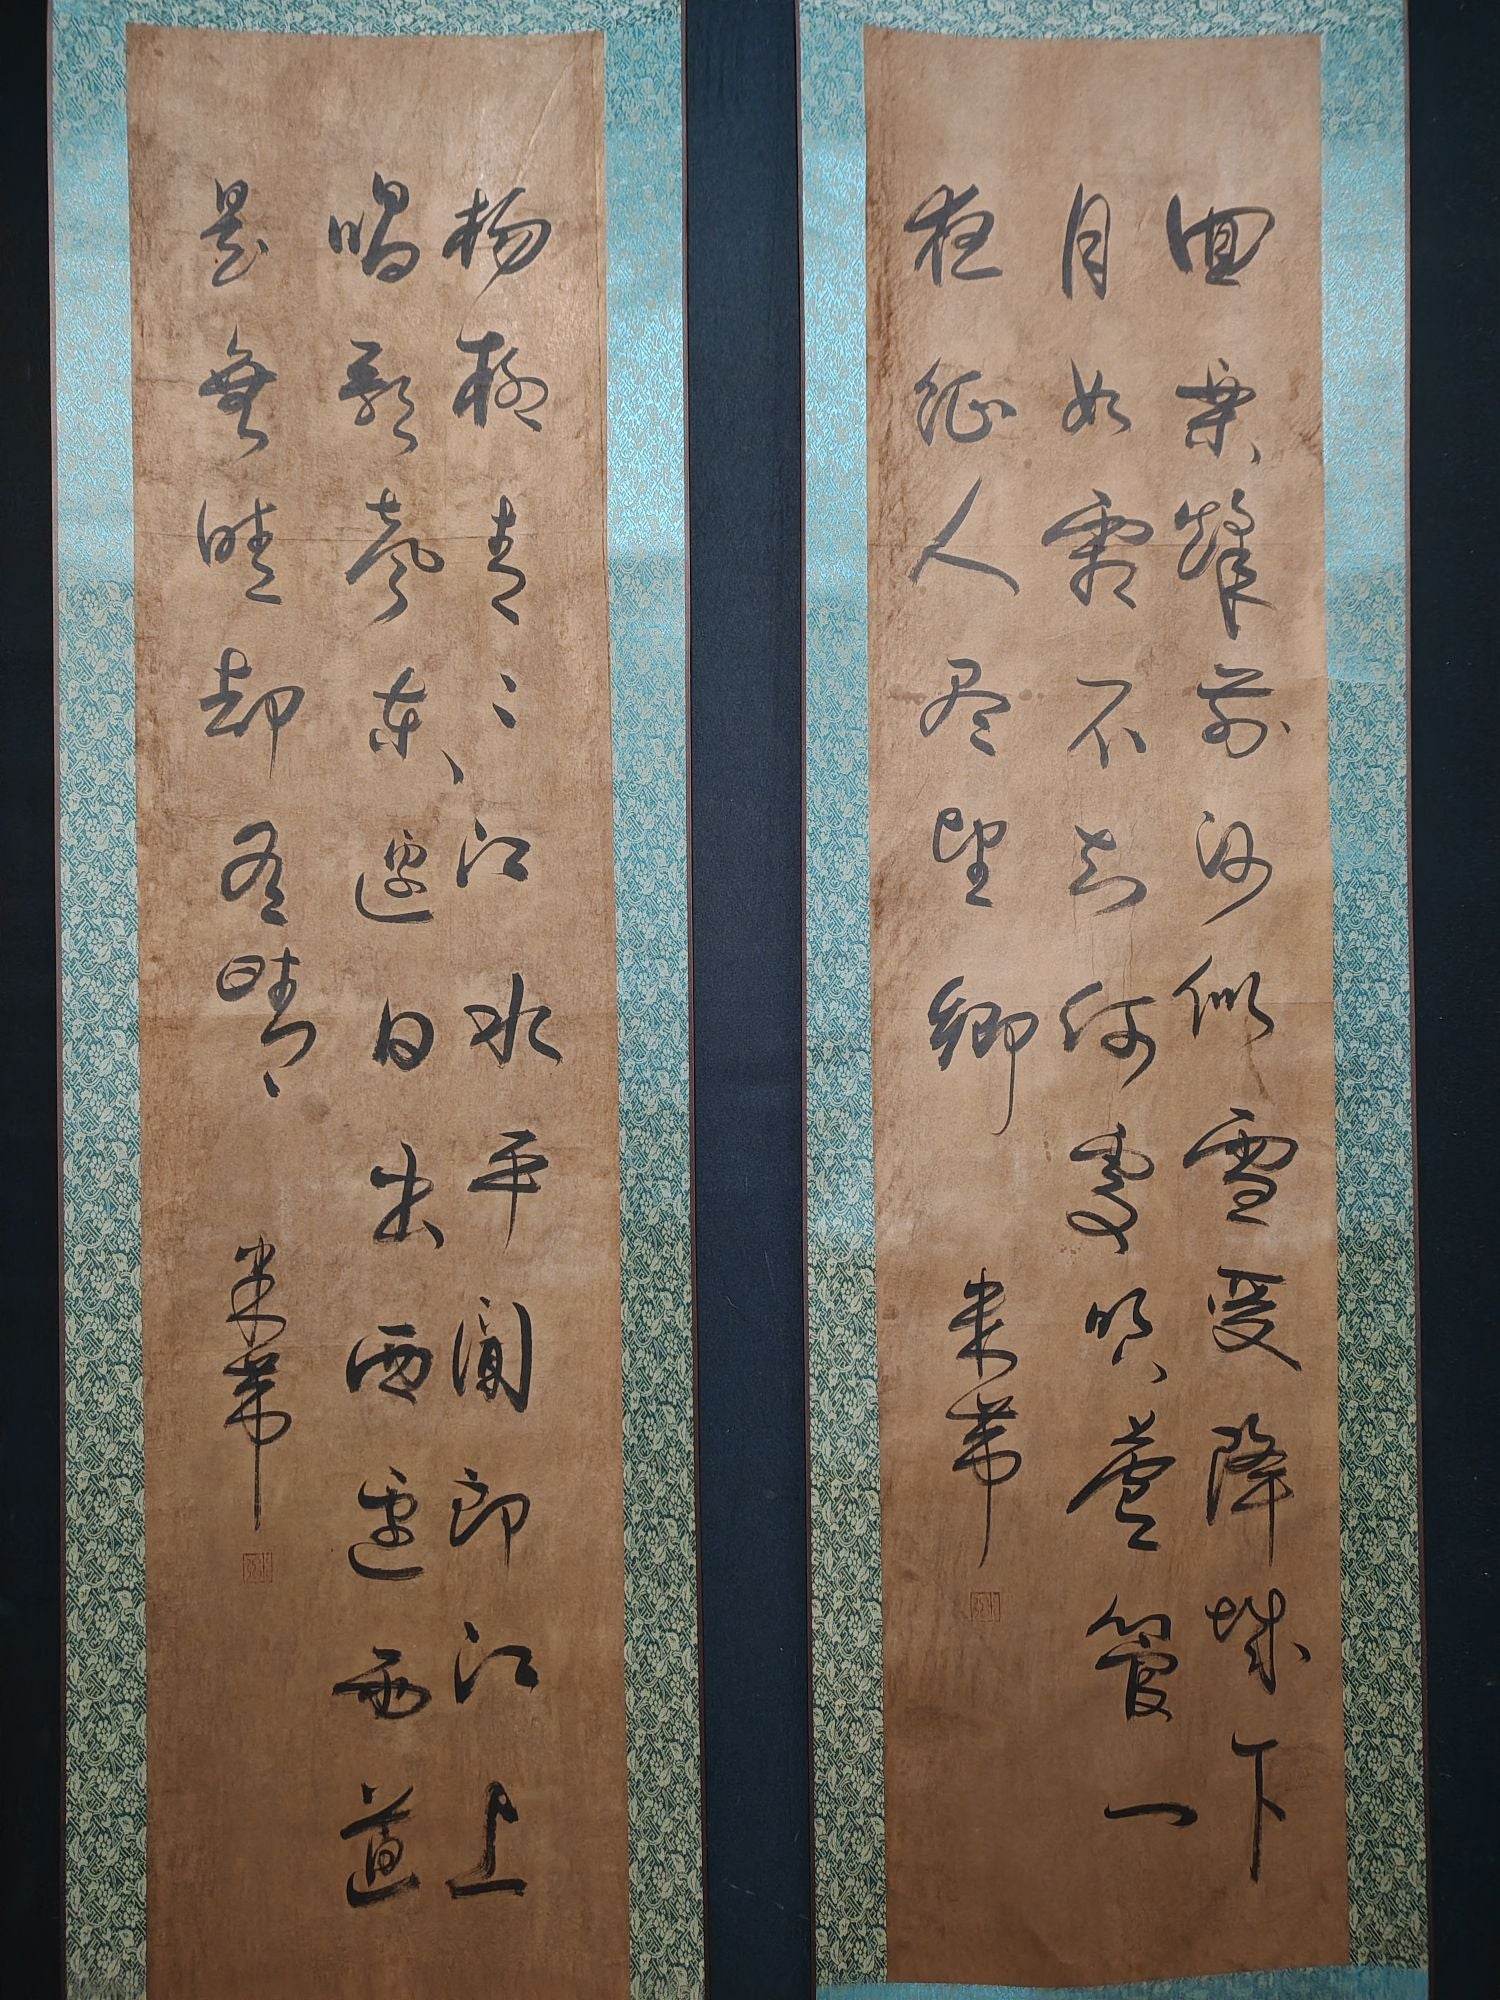 回樂烽前沙似雪受降城下
月如霜不知何處吹蘆管一
夜征人尽望鄉
米芾
楊柳青々江水平聞郎江上
唱歌聲東邊日出西邊雨道
是無晴却有晴
米芾